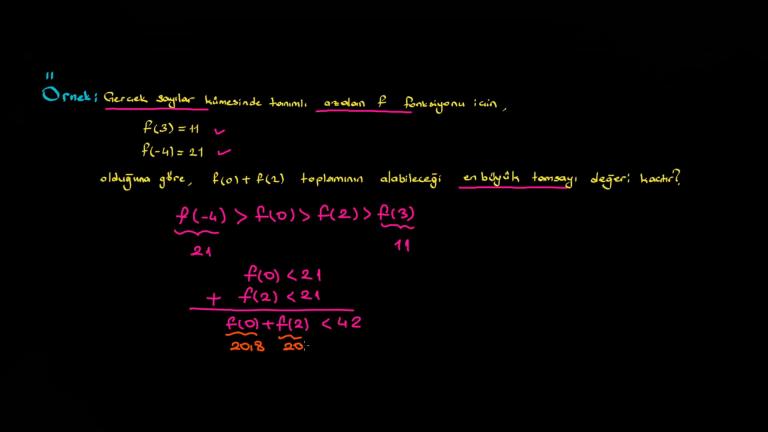 Örnek: Gercek sayılar kümesinde tanımlı azalan f fonksiyonu icin,
f(3) = 11 ✓
f(-4) = 21 ✓
olduğuna göre, f(0) + f(2) toplamının alabileceği en büyük tamsayı değeri kactır?
f(-4) > f(0) > f(2) > f(3)
21 11
f(0) < 21
+ f(2) < 21
f(0) + f(2) < 42
20,8 20